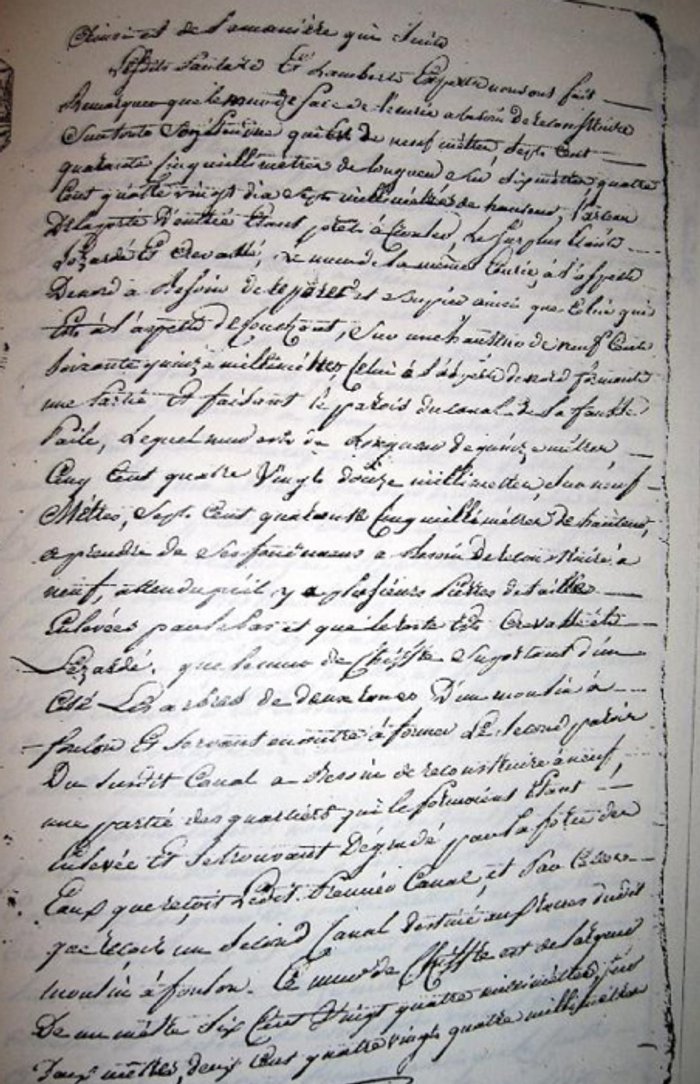 ainsi et de la manière qui suit
Lesdits Experts nous ont fait
Remarquer que le mur de face de l'ecurie a besoin de reconstruire
Sur toute Son qui Est de neuf mètres, Sept Cent
quarante Cinq millimètres de longueur Sur Six mètres quatre
Cent quatre vingt dix Sept millimètres de hauteur, l'arceau
De la porte D'entrée Etant prêt à Crouler, Le Surplus Etant
Lézardé Et Crevassé, Le mur de la même Ecurie, à l'aspect
De nord a Besoin de et ainsi que Celui qui
Est à l'aspect de Couchant, Sur une hauteur de neuf Cent
Soixante quinze millimètres, Celui à l'aspect de nord formant
une Partie Et faisant le parois du Canal de la fausse
Lequel mur est de Longueur de quinze mètres
Cinq Cent quatre Vingt douze millimètres, Sur neuf
Mètres, Sept Cent quarante Cinq millimètres de hauteur,
a prendre de Ses fondemens a Besoin de reconstruire à
neuf, attendu qu'il y a plusieurs Pierres de taille
Enlevées par le bas et que le reste Est Crevassé et
Lézardé. que le mur de Chiffre Suportant d'un
Coté Les arbres de deux roues D'un moulin à
foulon Et Servant en outre à former Le Second parois
Du Susdit Canal a Besoin de reconstruire à neuf,
une partie des quartiers qui le formoient Etant
Enlevée Et Se trouvant Dégradé par la force des
Eaux que reçoit Ledit Premier Canal, et Par Celles
que reçoit un Second Canal destiné au dudit
moulin à foulon. Ce mur de Chiffre est de Longueur
De un mètre Six Cent Vingt quatre millimètres, Sur
Deux mètres, deux Cent quatre vingt quatre millimètres